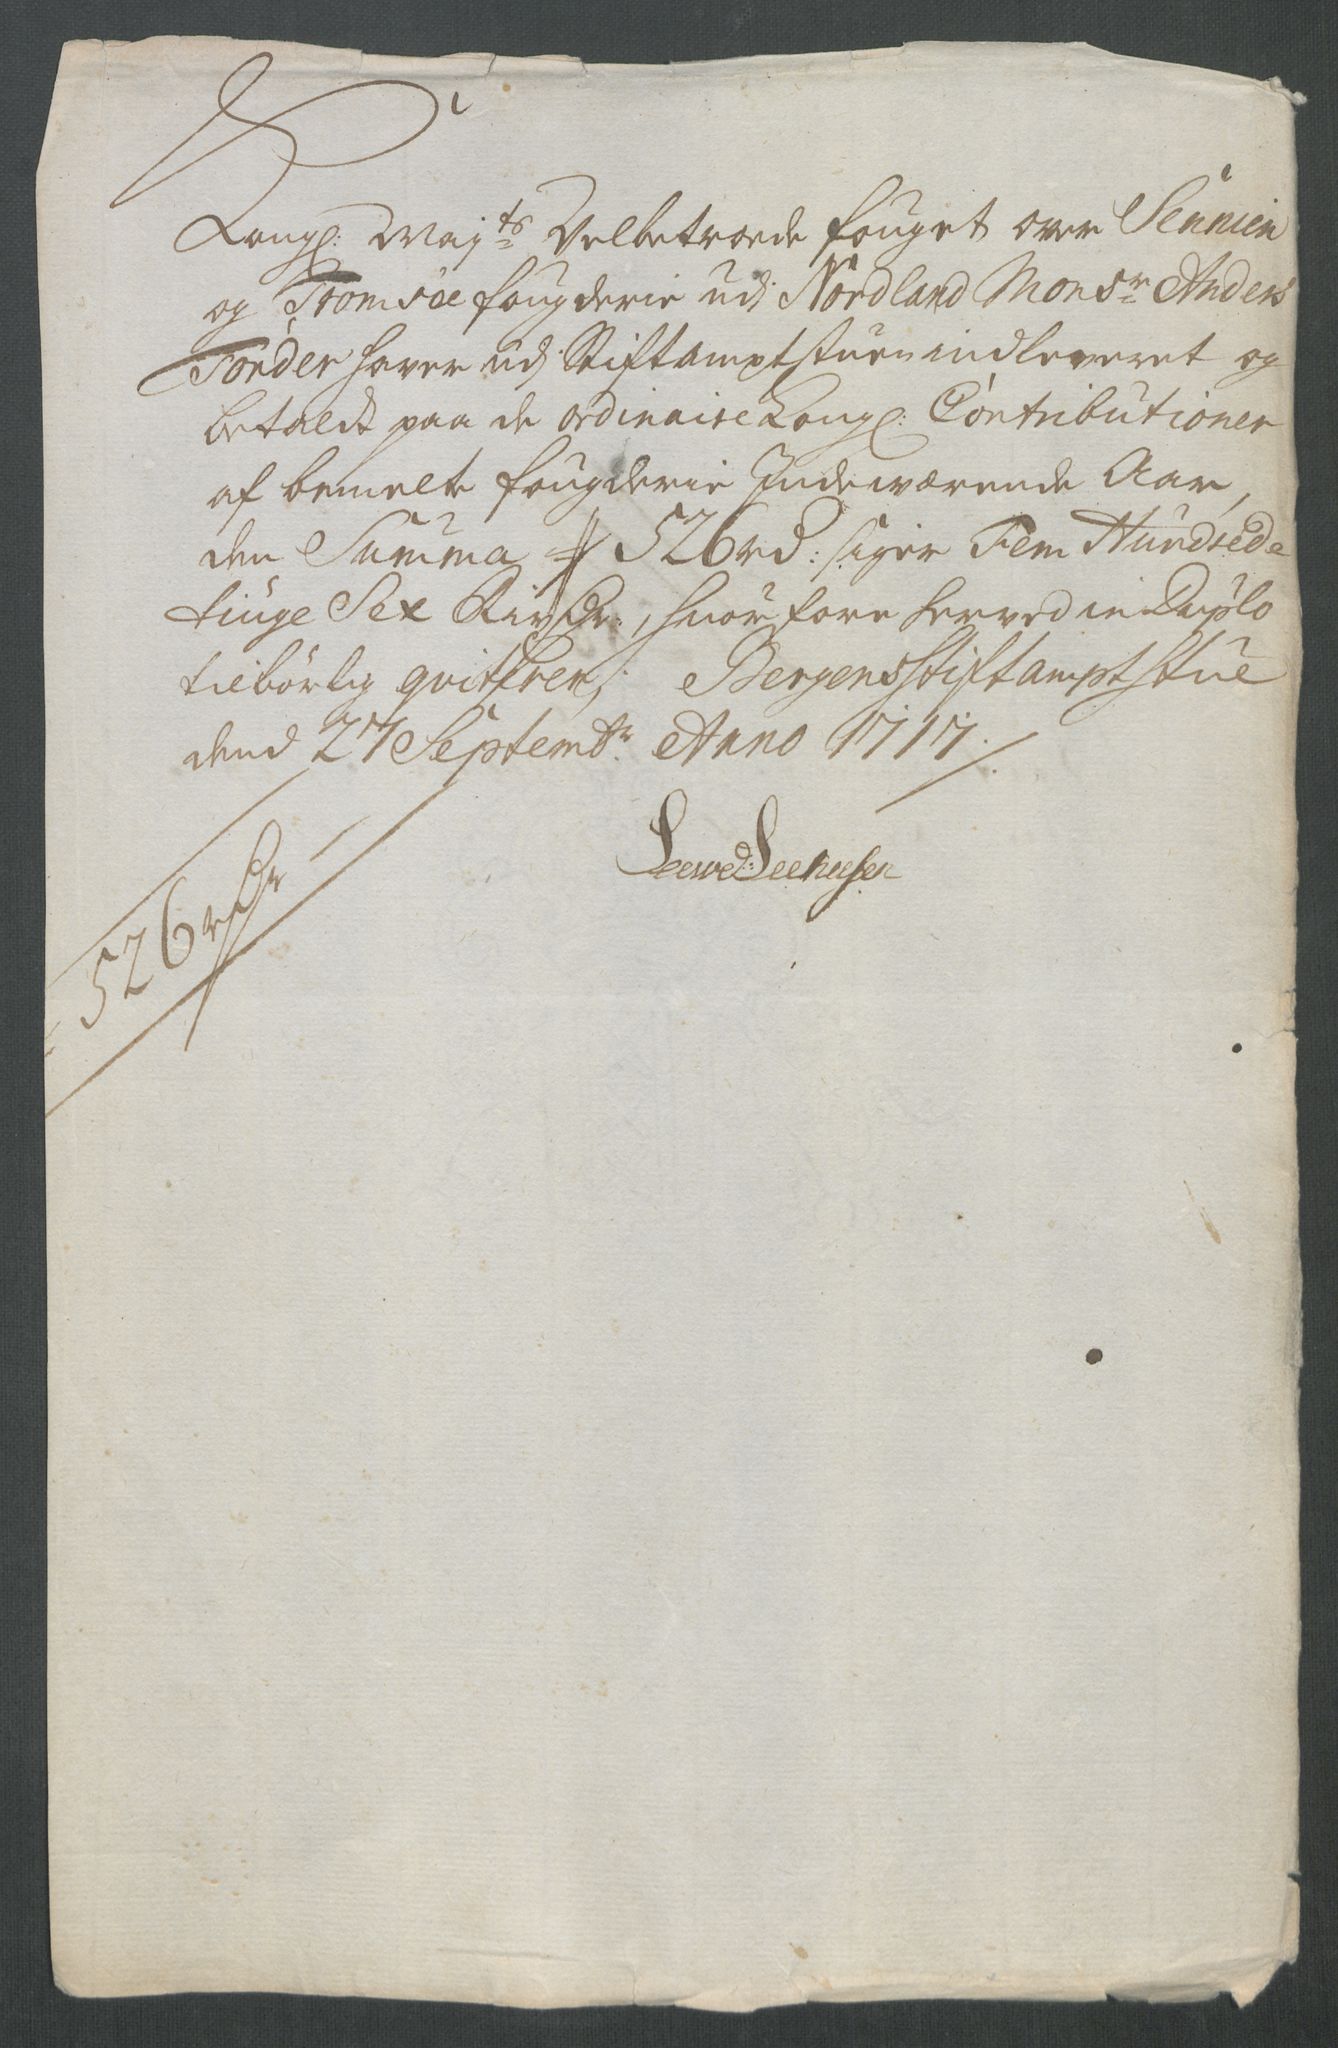 Kongl: Mayts Velbetroede fouget over Sennien
og Tromsøe fougderie udj Nordland Monsr Anders
Tønder haver udj Stiftamptstuen indleveret og
betaldt paa de ordinaire Kongl: Contributioner
af bemelte fougderie Indeværende Aar,
den Summa 526 rd: siger Fem Hundrede
tiuge Sex Rixdr:, hvorfore herved in Duplo
tilbørlig qvitteres; Bergens Stiftamptstue
dend 27 Septembr: Anno 1717.
526 rdr